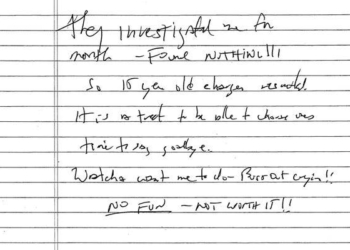 They investigated me for
month - FOUND NOTHING!!!
So 16 year old charges resulted.
It is a treat to be able to choose ones
time to say goodbye.
Watcha want me to do - Burst out cryin!!
NO FUN - NOT WORTH IT!!